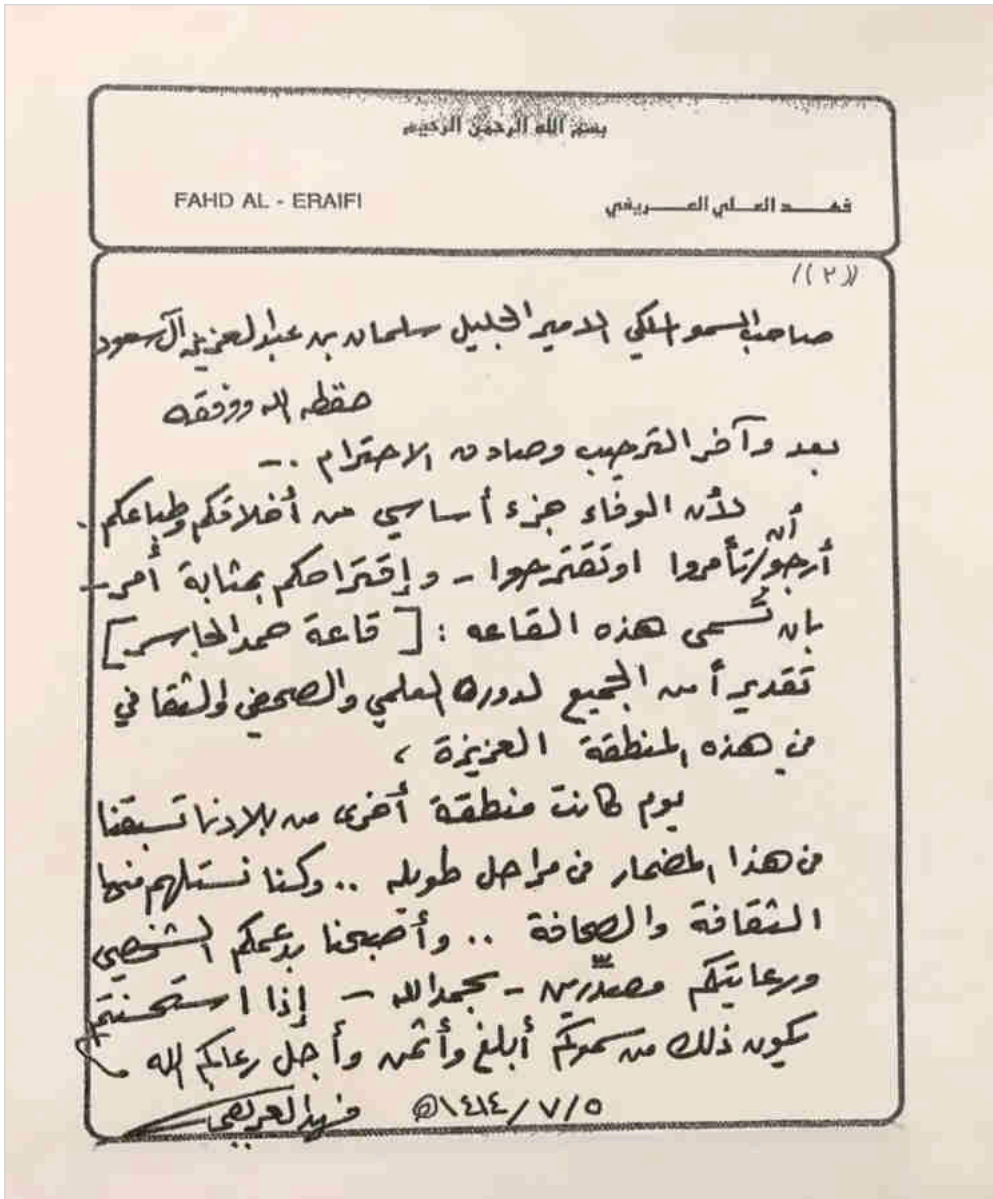 بسم الله الرحمن الرحيم
FAHD AL - ERAIFI
فهد العلي العريفي
((٢))
صاحب السمو الملكي الامير الجليل سلمان بن عبدالعزيز آل سعود
حفظه الله ووفقه
بعد وآفر الترحيب وصادق الاحترام .–
لأن الوفاء جزء أساسي من أخلاقكم وطباعكم .
أرجو أن تأمروا اوتقترحوا – وإقتراحكم بمثابة أمر –
بان تُسمى هذه القاعه : [ قاعة حمد الجاسر ]
تقديراً من الجميع لدوره العلمي والصحفي والثقافي
في هذه المنطقة العزيزة ،
يوم كانت منطقة أخرى من بلادنا تسبقنا
في هذا المضمار في مراحل طويله .. وكنا نستلهم منها
الثقافة والصحافة .. وأصبحنا بدعمكم الشخصي
ورعايتكم مصدّرين – بحمد الله – إذا استحسنتم
يكون ذلك من سموكم أبلغ وأثمن وأجل رعاكم الله
٥/٧/١٤١٤هـ
فهد العريفي